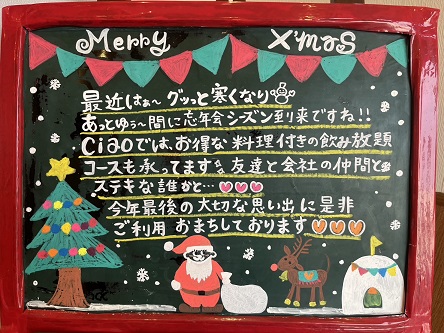 Merry X'mas
最近はぁ〜グリっと寒くなり
あっとゆぅ〜間に忘年会シーズン到来ですね!!
Ciaoでは、お得な料理付きの飲み放題
コースも承ってます 友達と会社の仲間と
ステキな誰かと…♡♡♡
今年最後の大切な思い出に是非
ご利用 おまちしております♡♡♡